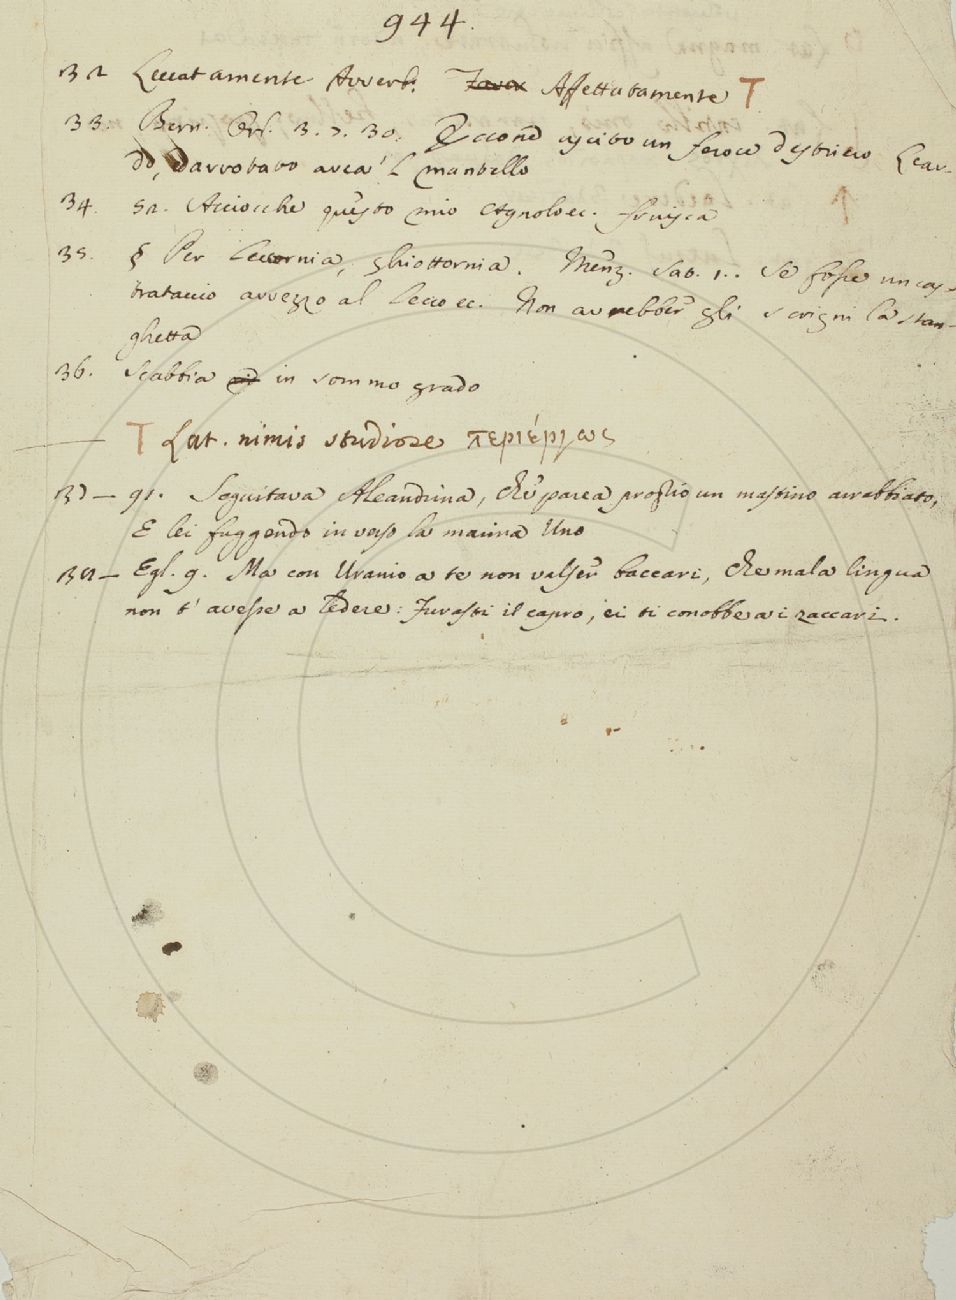 944.
32 Leccatamente Avverb. Affettatamente T
33. Bern. Orl. 3. 7. 30. Eccone uscito un feroce destriero Lear-
do, Davvobato avea 'l mantello
34. 52. Acciocche questo mio Agnolo ec. fruisca
35. § Per Leccornia, ghiottornia. Menz. Sat. 1.. Se fosse un cas-
trataccio avvezzo al Lecco ec. Non avrebber gli scrigni la stan-
ghetta
36. Scabbia in sommo grado
T Lat. nimis studiose περιέργως
37 — 91. Seguitava Aleandrina, che parea proprio un mastino arrabbiato,
E lei fuggendo in verso la marina Uno
38 — Egl. 9. Ma con Uranio a te non valser baccari, Che mala lingua
non t' avesse a ledere: Furasti il capro, ei ti conobbe a i zaccari.